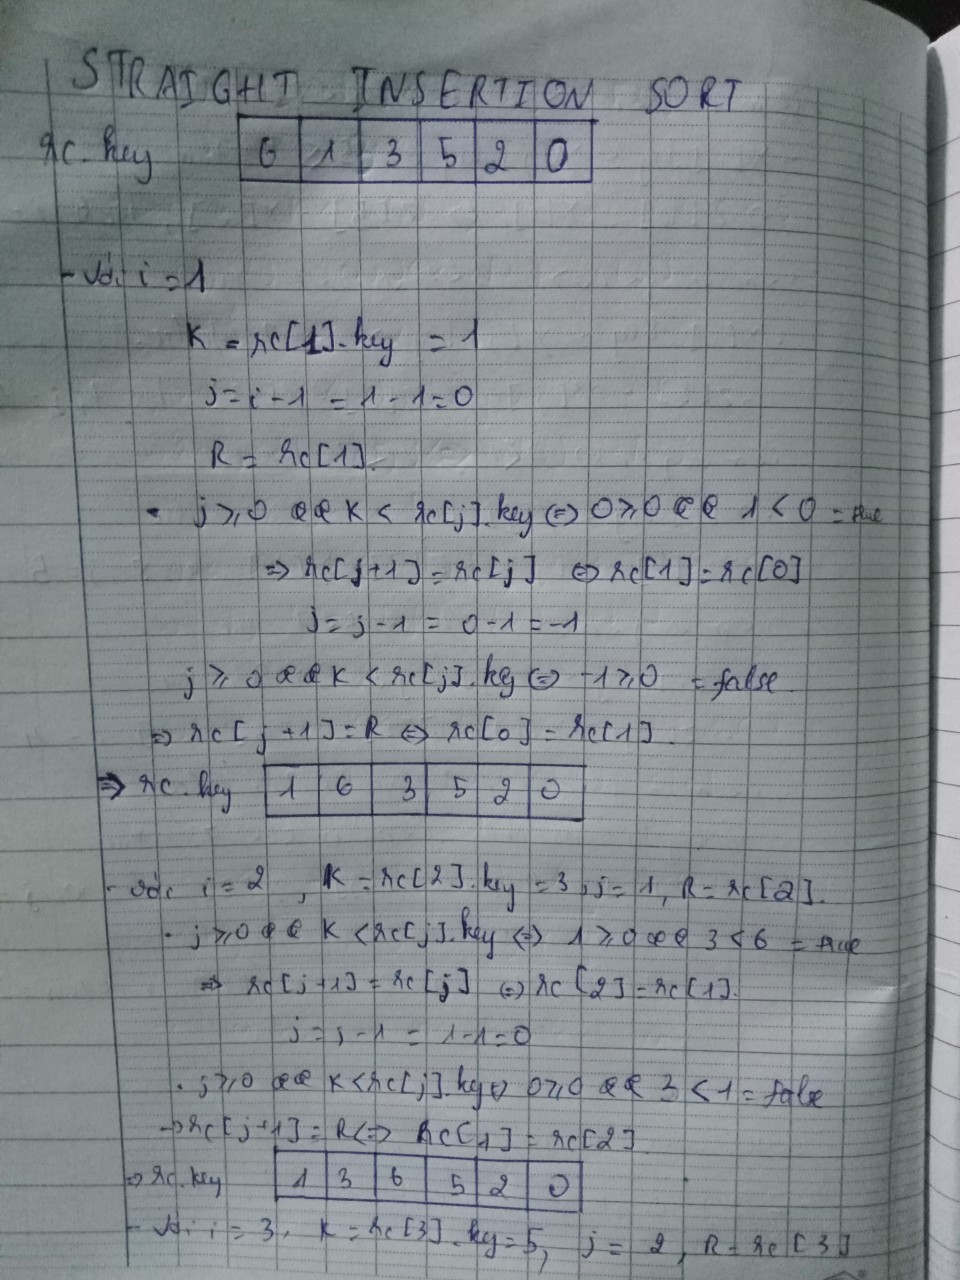 STRAIGHT INSERTION SORT
rc.key 6 1 3 5 2 0
- Với i = 1
K = rc[1].key = 1
j = i - 1 = 1 - 1 = 0
R = rc[1].
• j ⩾ 0 && K < rc[j].key ⇔ 0 ⩾ 0 && 1 < 0 = true
⇒ rc[j+1] = rc[j] ⇔ rc[1] = rc[0]
j = j - 1 = 0 - 1 = -1
j ⩾ 0 && K < rc[j].key ⇔ -1 ⩾ 0 = false
⇒ rc[j+1] = R ⇔ rc[0] = rc[1].
⇒ rc.key 1 6 3 5 2 0
- Với i = 2, K = rc[2].key = 3, j = 1, R = rc[2].
• j ⩾ 0 && K < rc[j].key ⇔ 1 ⩾ 0 && 3 < 6 = true
⇒ rc[j+1] = rc[j] ⇔ rc[2] = rc[1].
j = j - 1 = 1 - 1 = 0
• j ⩾ 0 && K < rc[j].key ⇔ 0 ⩾ 0 && 3 < 1 = false
⇒ rc[j+1] = R ⇔ rc[1] = rc[2]
⇒ rc.key 1 3 6 5 2 0
- Với i = 3, K = rc[3].key = 5, j = 2, R = rc[3]